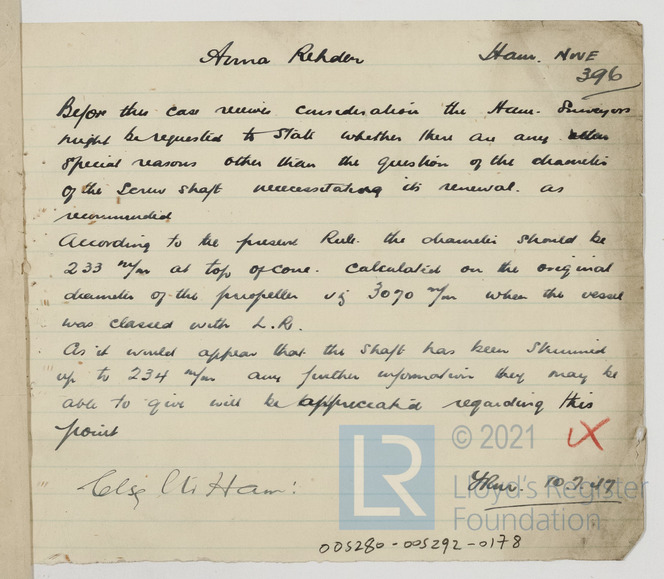 Anna Rehder Ham. NOVE
396
Before this case receives consideration the Ham. Surveyors
might be requested to state whether there are any
special reasons other than the question of the diameter
of the Screw Shaft necessitating its renewal. as
recommended
According to the present Rule. the diameter should be
233 m/m at top of cone. calculated on the original
diameter of the propeller viz 3070 m/m when the vessel
was classed with L.R.
As it would appear that the shaft has been skimmed
up to 234 m/m any further information they may be
able to give will be appreciated regarding this
point
© 2021
LR
Lloyd's Register
Foundation
Ham:
10.7.47
005280-005292-0178